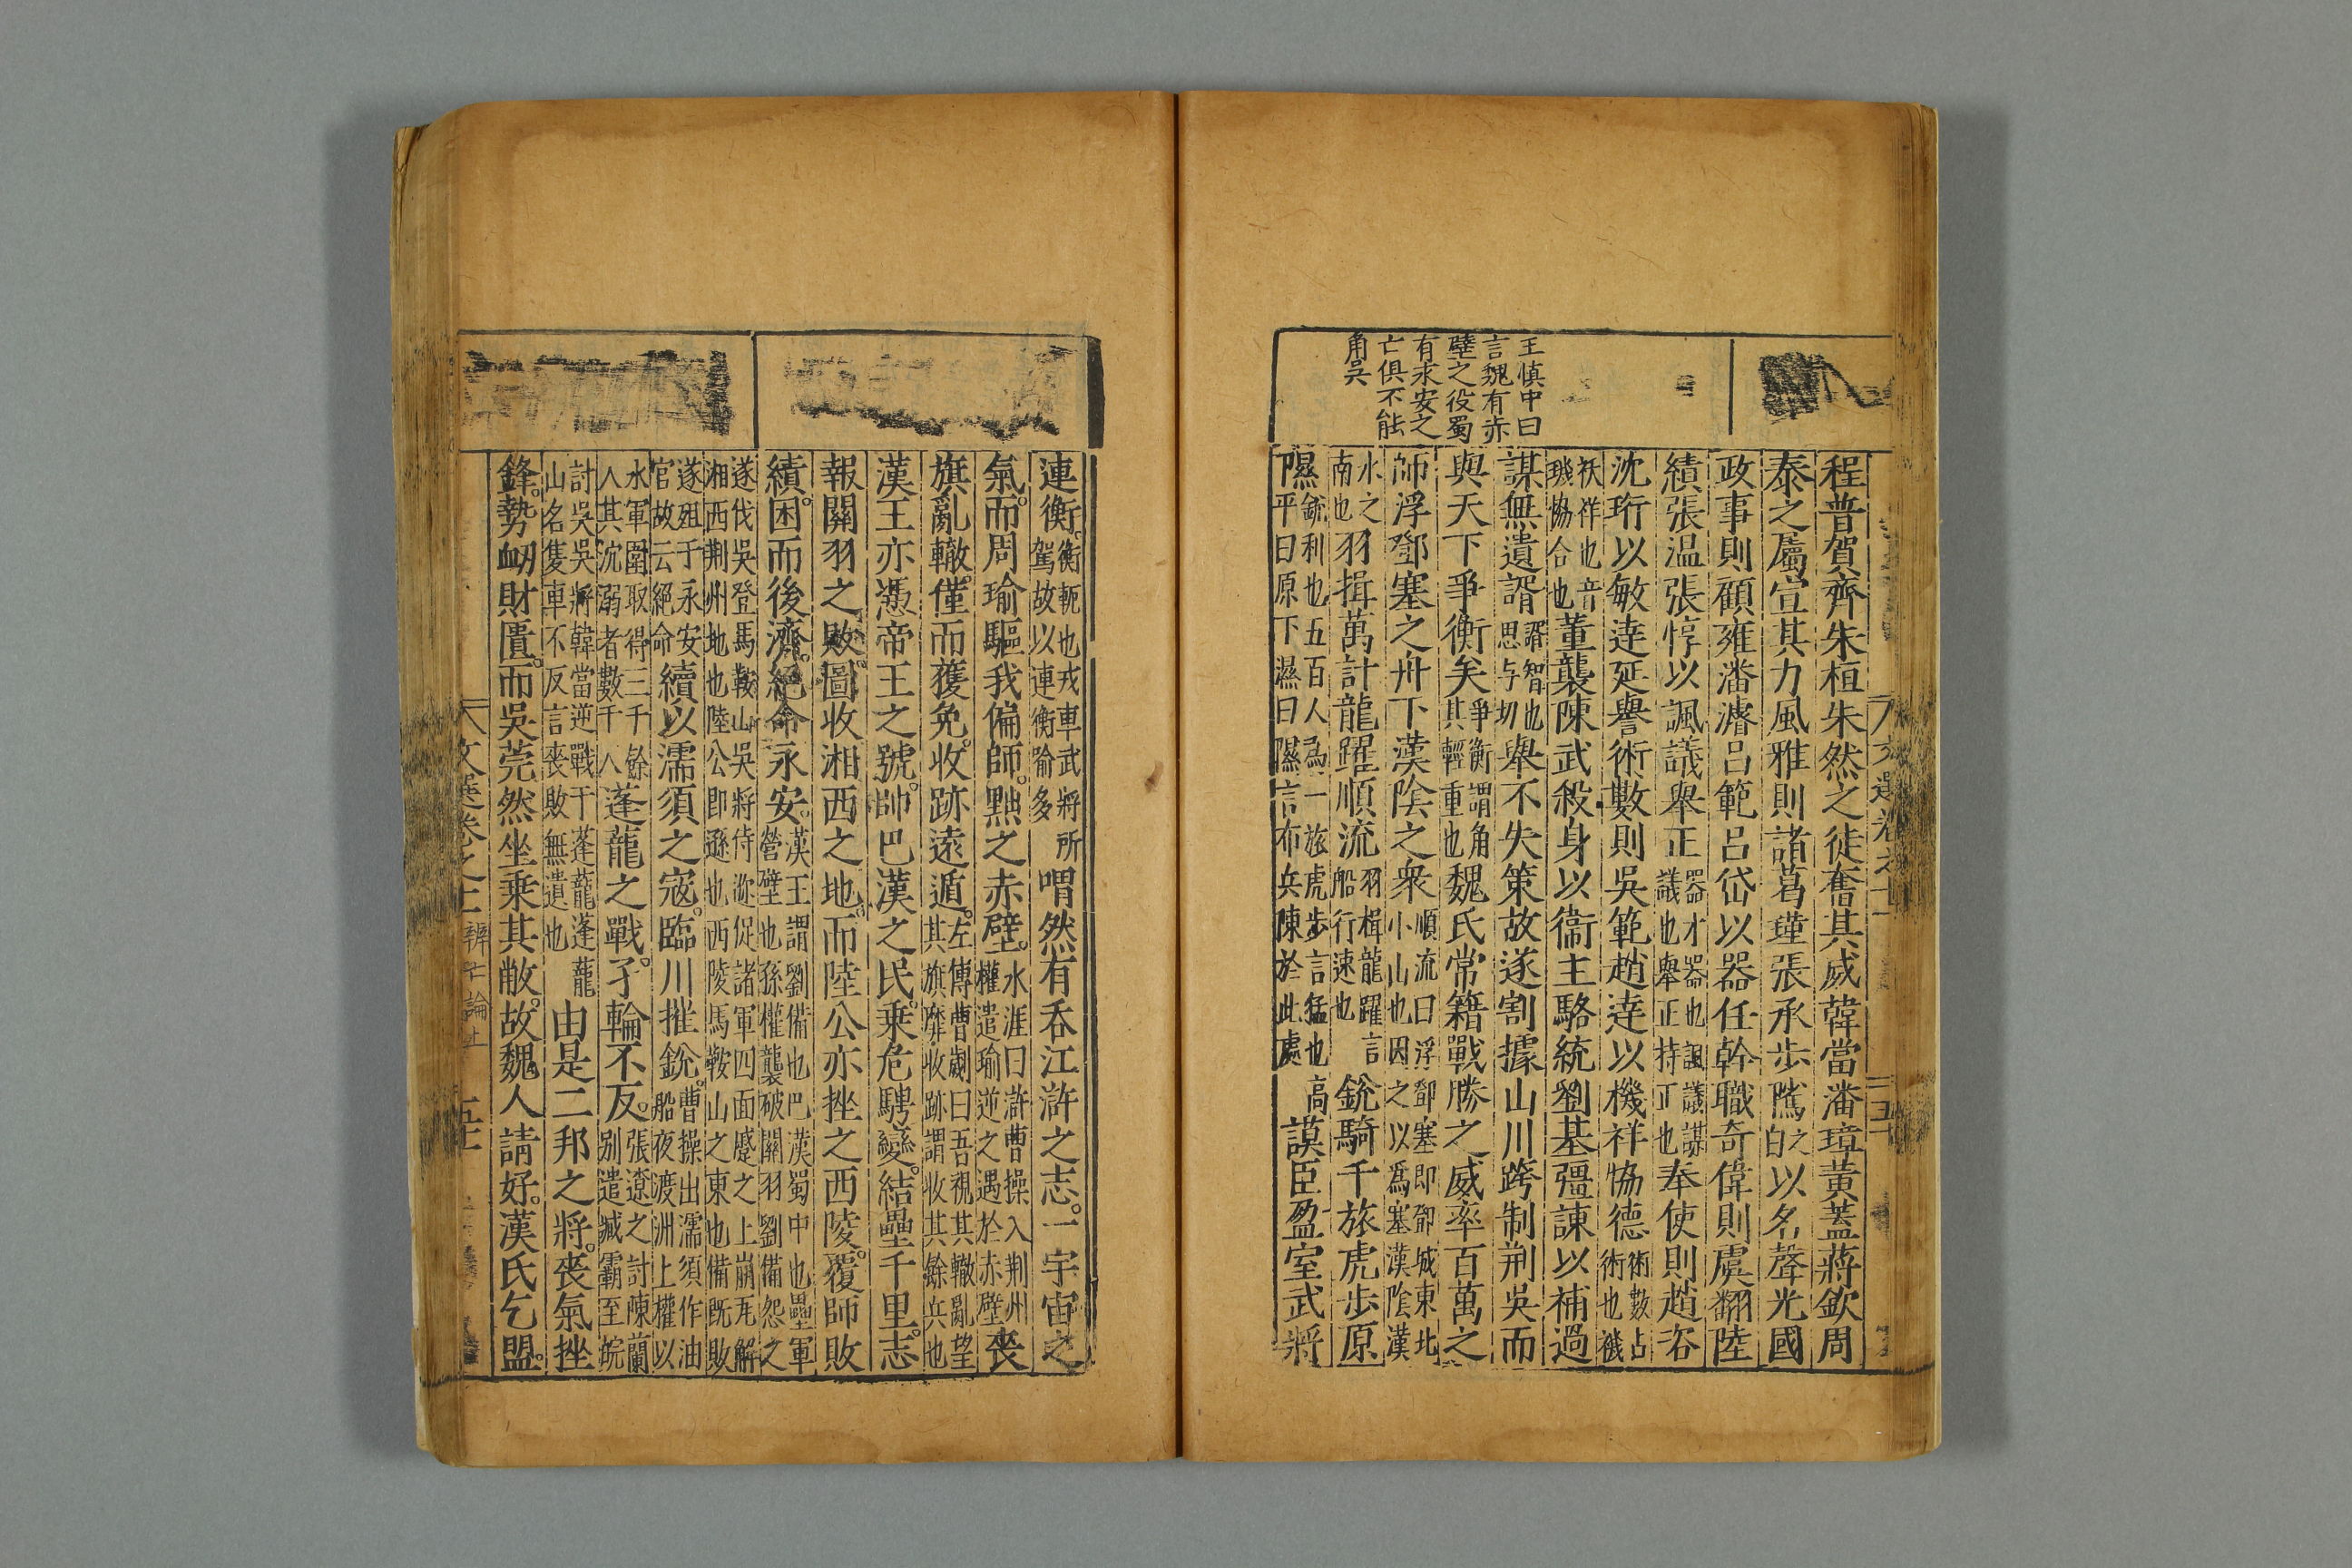 王慎中曰
言魏有赤
壁之役蜀
有永安之
亡俱不能
角吳
程普賀齊朱桓朱然之徒奮其威韓當潘璋黃蓋蔣欽周
泰之屬宣其力風雅則諸葛瑾張承步隲之白以名聲光國
政事則顧雍潘濬呂範呂岱以器任幹職奇偉則虞翻陸
績張温張惇以諷議舉正器才器也諷議謀議也舉正持正也奉使則趙咨
沈珩以敏達延譽術數則吳範趙達以機祥恊德術數占術也禨
祅祥也音璣恊合也董襲陳武殺身以衞主駱統劉基彊諫以補過
謀無遺諝諝智也思与切舉不失策故遂割據山川跨制荆吳而
與天下爭衡矣爭衡謂角其輕重也魏氏常籍戰勝之威率百萬之
師浮鄧塞之舟下漢陰之衆順流曰浮鄧塞即鄧城東北小山也因之以爲塞漢陰漢
水之南也羽揖萬計龍躍順流羽楫龍躍言船行速也銳騎千旅虎步原
隰銳利也五百人爲一旅虎步言猛也高平曰原下濕曰隰言布兵陳於此處謨臣盈室武將
連衡衡軛也戎車武將所駕故以連衡喻多喟然有吞江滸之志一宇宙之
氣而周瑜驅我偏師黜之赤壁水涯曰滸曹操入荆州權遣瑜逆之遇於赤壁喪
旗亂轍僅而獲免收跡遠遁左傳曹劌曰吾視其轍亂望其旗靡收跡謂收其餘兵也
漢王亦憑帝王之號帥巴漢之民乗危騁變結壘千里志
報關羽之敗圖收湘西之地而陸公亦挫之西陵覆師敗
績困而後濟絕命永安漢王謂劉備也巴漢蜀中也壘軍營壁也孫權襲破關羽劉備怨之
遂伐吳登馬鞍山吳將侍迩促諸軍四面蹙之上崩瓦解湘西荆州地也陸公即遜也西陵馬鞍山之東也備既敗
遂殂于永安官故云絕命續以濡須之寇臨川摧銳曹操出濡須作油船夜渡洲上權以
水軍圍取得三千餘人其沈溺者數千人蓬蘢之戰孑輪不反張遼之討陳蘭别遣臧霸至皖
討吳吳將韓當逆戰于蓬蘢蓬蘢山名隻車不反言喪敗無遺也由是二邦之將喪氣挫
鋒勢衂財匱而吳莞然坐乗其敝故魏人請好漢氏乞盟